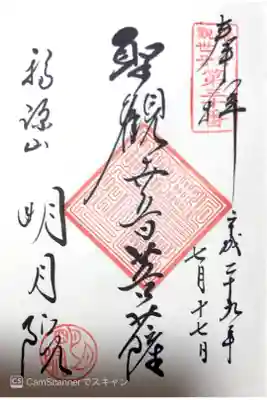 奉拝
平成二十九年
七月十七日
聖観世音菩薩
福源山
明月院
CS CamScannerでスキャン